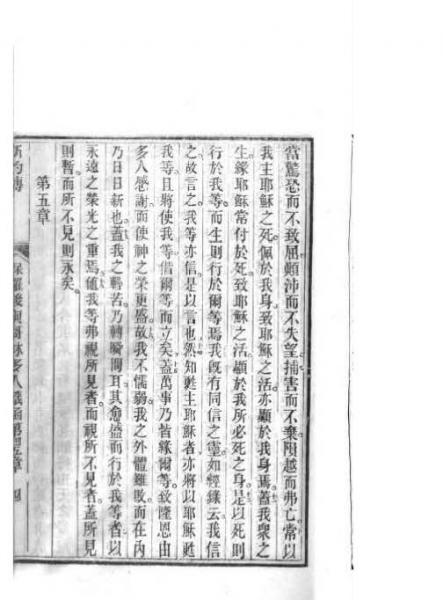 當驚恐而不致屈顛沛而不失望捕害而不棄隕越而弗亡常以
我主耶穌之死佩於我身致耶穌之活亦顯於我身焉蓋我衆之
生緣耶穌常付於死致耶穌之活顯於我所必死之身是以死則
行於我等而生則行於爾等焉我既有同信之靈如經錄云我信
之故言之我等亦信是以言也然知甦主耶穌者亦將以耶穌甦
我等且將使我等偕爾等而立矣蓋萬事乃皆緣爾等致隆恩由
多人感謝而使神之榮更盛故我不懦弱我之外體雖敗而在內
乃日日新也蓋我之輕若乃轉瞬間耳其愈盛而行於我等者以
永遠之榮光之重焉値我等弗視所見者而視所不見者蓋所見
則暫而所不見則永矣
第五章
新約傳 保羅後與哥林多人書第四章 四